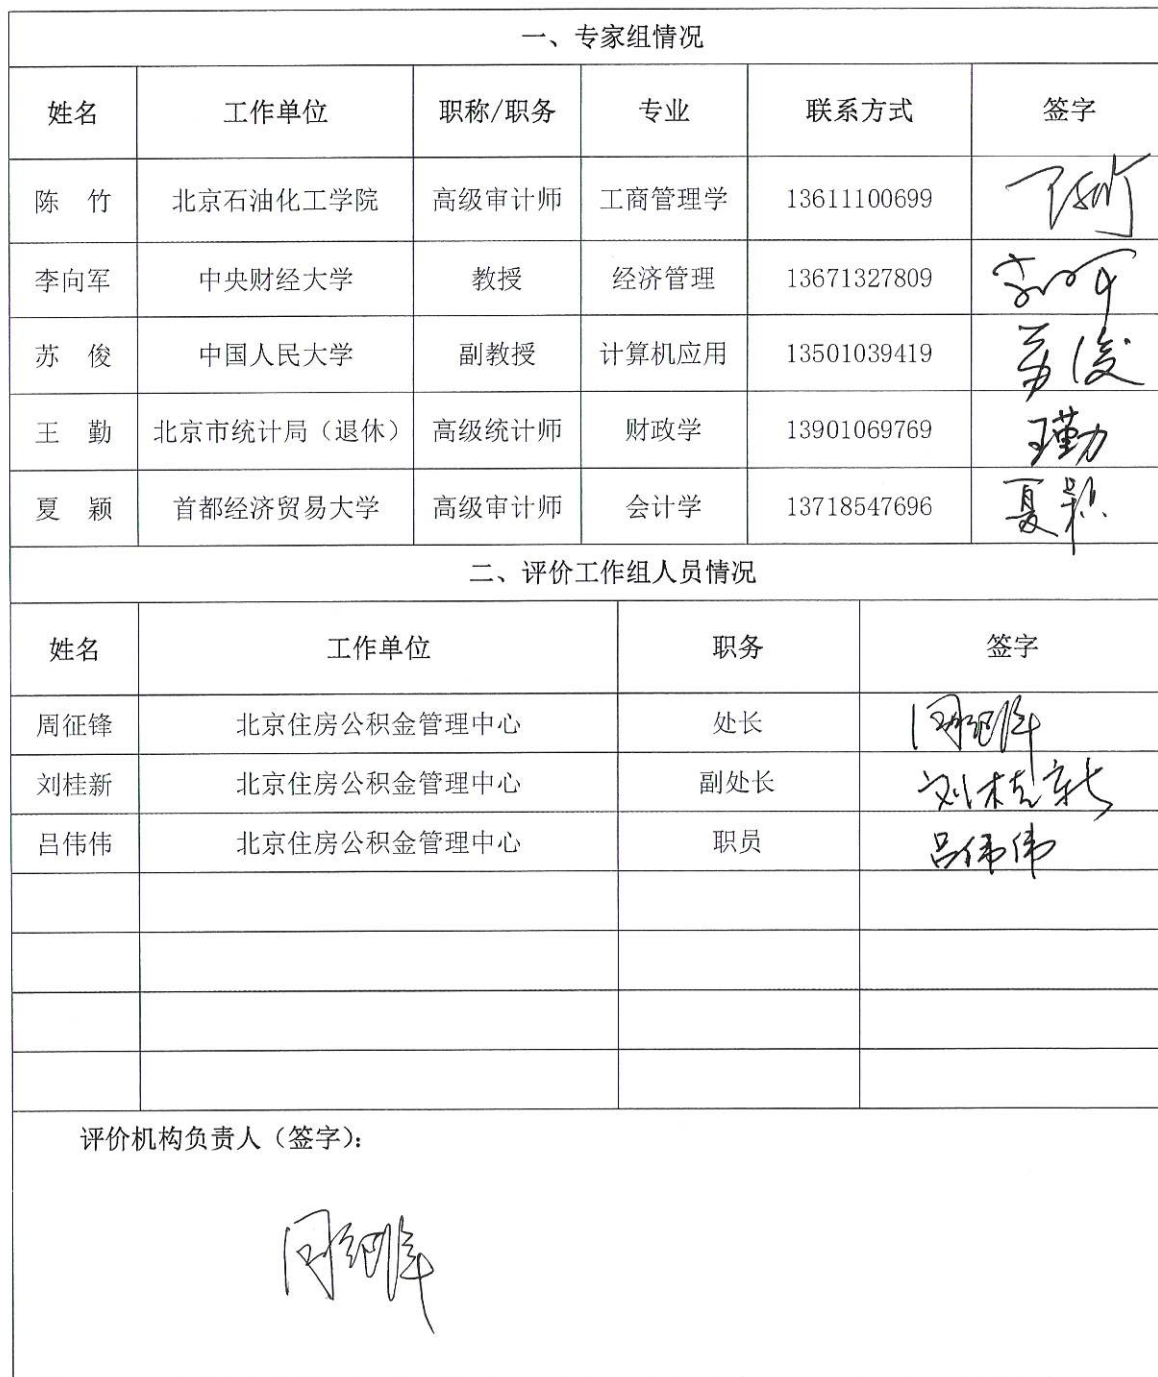 一、专家组情况
姓名 工作单位 职称/职务 专业 联系方式 签字
陈 竹 北京石油化工学院 高级审计师 工商管理学 13611100699 陈竹
李向军 中央财经大学 教授 经济管理 13671327809
苏 俊 中国人民大学 副教授 计算机应用 13501039419 苏俊
王 勤 北京市统计局（退休） 高级统计师 财政学 13901069769 王勤
夏 颖 首都经济贸易大学 高级审计师 会计学 13718547696 夏颖
二、评价工作组人员情况
姓名 工作单位 职务 签字
周征锋 北京住房公积金管理中心 处长
刘桂新 北京住房公积金管理中心 副处长 刘桂新
吕伟伟 北京住房公积金管理中心 职员 吕伟伟
评价机构负责人（签字）：